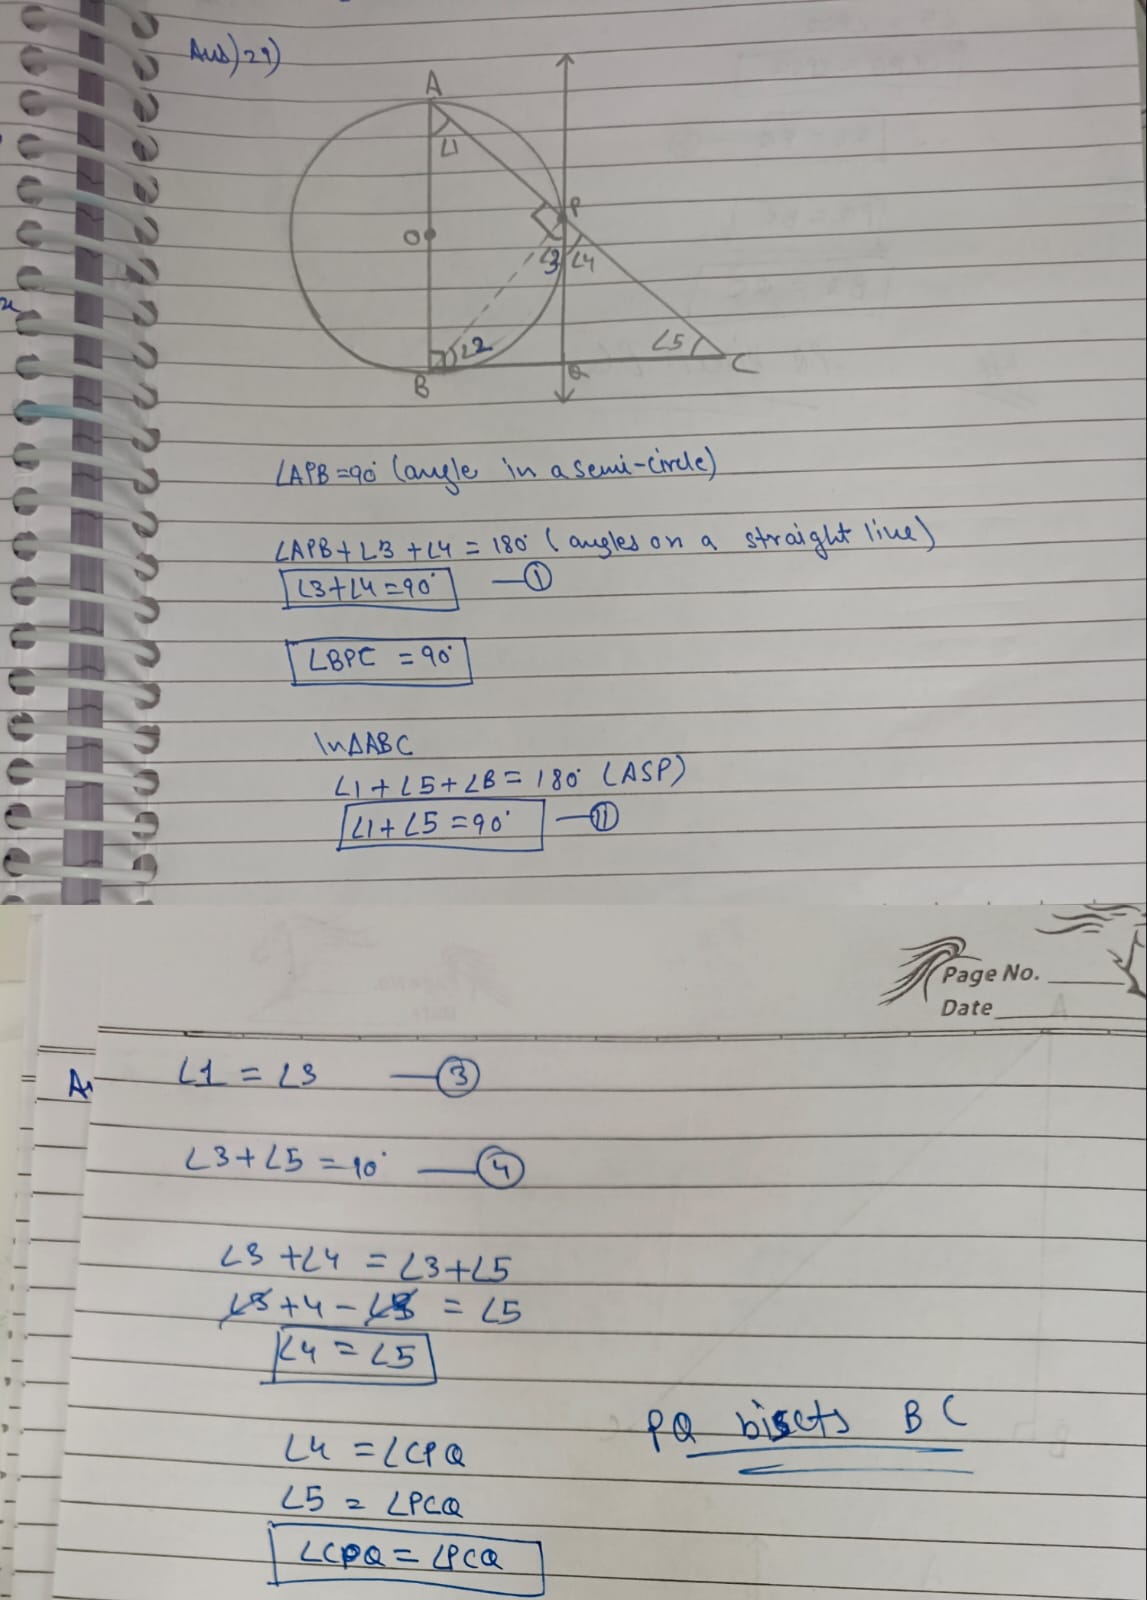 Ans) 29)
A
∠1
P
O
∠3 ∠4
∠2
∠5
B
Q
C
∠APB=90° (angle in a semi-circle)
∠APB+∠3+∠4=180° (angles on a straight line)
∠3+∠4=90° —①
∠BPC = 90°
In △ABC
∠1+∠5+∠B=180° (ASP)
∠1+∠5=90° —⑪
Page No.
Date
∠1 = ∠3 —③
∠3+∠5=90° —④
∠3+∠4 = ∠3+∠5
∠3+4-∠3 = ∠5
∠4=∠5
PQ bisects BC
∠4 = ∠CPQ
∠5 = ∠PCQ
∠CPQ=∠PCQ